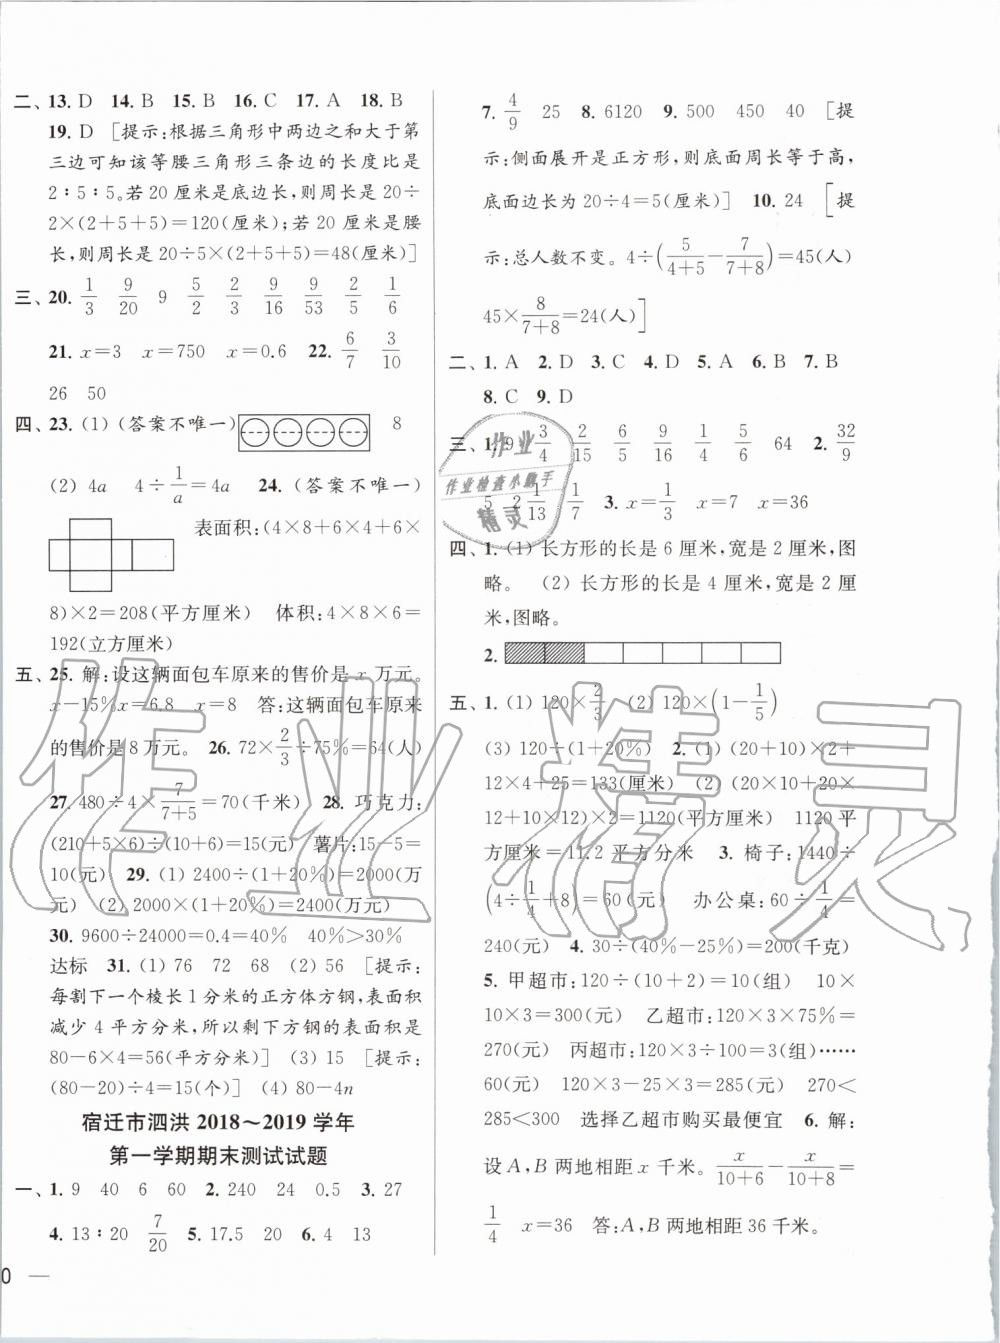 二、13. D 14. B 15. B 16. C 17. A 18. B
19. D [提示:根据三角形中两边之和大于第
三边可知该等腰三角形三条边的长度比是
2∶5∶5。若 20 厘米是底边长,则周长是 20÷
2×(2+5+5)=120(厘米);若 20 厘米是腰
长,则周长是 20÷5×(2+5+5)=48(厘米)]
三、20. 1/3 9/20 9 5/2 2/3 9/16 9/53 2/5 1/6
21. x=3 x=750 x=0.6 22. 6/7 3/10
26 50
四、23. (1) (答案不唯一) 8
(2) 4a 4÷1/a=4a 24. (答案不唯一)
表面积:(4×8+6×4+6×
8)×2=208(平方厘米) 体积:4×8×6=
192(立方厘米)
五、25. 解:设这辆面包车原来的售价是 x 万元。
x-15%x=6.8 x=8 答:这辆面包车原来
的售价是 8 万元。 26. 72×2/3÷75%=64(人)
27. 480÷4×7/(7+5)=70(千米) 28. 巧克力:
(210+5×6)÷(10+6)=15(元) 薯片:15-5=
10(元) 29. (1) 2400÷(1+20%)=2000(万
元) (2) 2000×(1+20%)=2400(万元)
30. 9600÷24000=0.4=40% 40%>30%
达标 31. (1) 76 72 68 (2) 56 [提示:
每割下一个棱长 1 分米的正方体方钢,表面积
减少 4 平方分米,所以剩下方钢的表面积是
80-6×4=56(平方分米)] (3) 15 [提示:
(80-20)÷4=15(个)] (4) 80-4n
宿迁市泗洪 2018～2019 学年
第一学期期末测试试题
一、1. 9 40 6 60 2. 240 24 0.5 3. 27
4. 13∶20 7/20 5. 17.5 20 6. 4 13
0 —
7. 4/9 25 8. 6120 9. 500 450 40 [提
示:侧面展开是正方形,则底面周长等于高,
底面边长为 20÷4=5(厘米)] 10. 24 [提
示:总人数不变。4÷(5/(4+5)-7/(7+8))=45(人)
45×8/(7+8)=24(人)]
二、1. A 2. D 3. C 4. D 5. A 6. B 7. B
8. C 9. D
三、1. 9 3/4 2/15 6/5 9/16 1/4 5/6 64 2. 32/9
5 2 1/13 1/7 3. x=1/3 x=7 x=36
四、1. (1) 长方形的长是 6 厘米,宽是 2 厘米,图
略。 (2) 长方形的长是 4 厘米,宽是 2 厘
米,图略。
2.
五、1. (1) 120×2/3 (2) 120×(1-1/5)
(3) 120÷(1+20%) 2. (1) (20+10)×2+
12×4+25=133(厘米) (2) (20×10+20×
12+10×12)×2=1120(平方厘米) 1120 平
方厘米=11.2 平方分米 3. 椅子:1440÷
(4÷1/4+8)=60(元) 办公桌:60÷1/4=
240(元) 4. 30÷(40%-25%)=200(千克)
5. 甲超市:120÷(10+2)=10(组) 10×
10×3=300(元) 乙超市:120×3×75%=
270(元) 丙超市:120×3÷100=3(组)……
60(元) 120×3-25×3=285(元) 270<
285<300 选择乙超市购买最便宜 6. 解:
设 A,B 两地相距 x 千米。x/(10+6)-x/(10+8)=
1/4 x=36 答:A,B 两地相距 36 千米。
作业
作业检查小助手
精灵
作业精灵